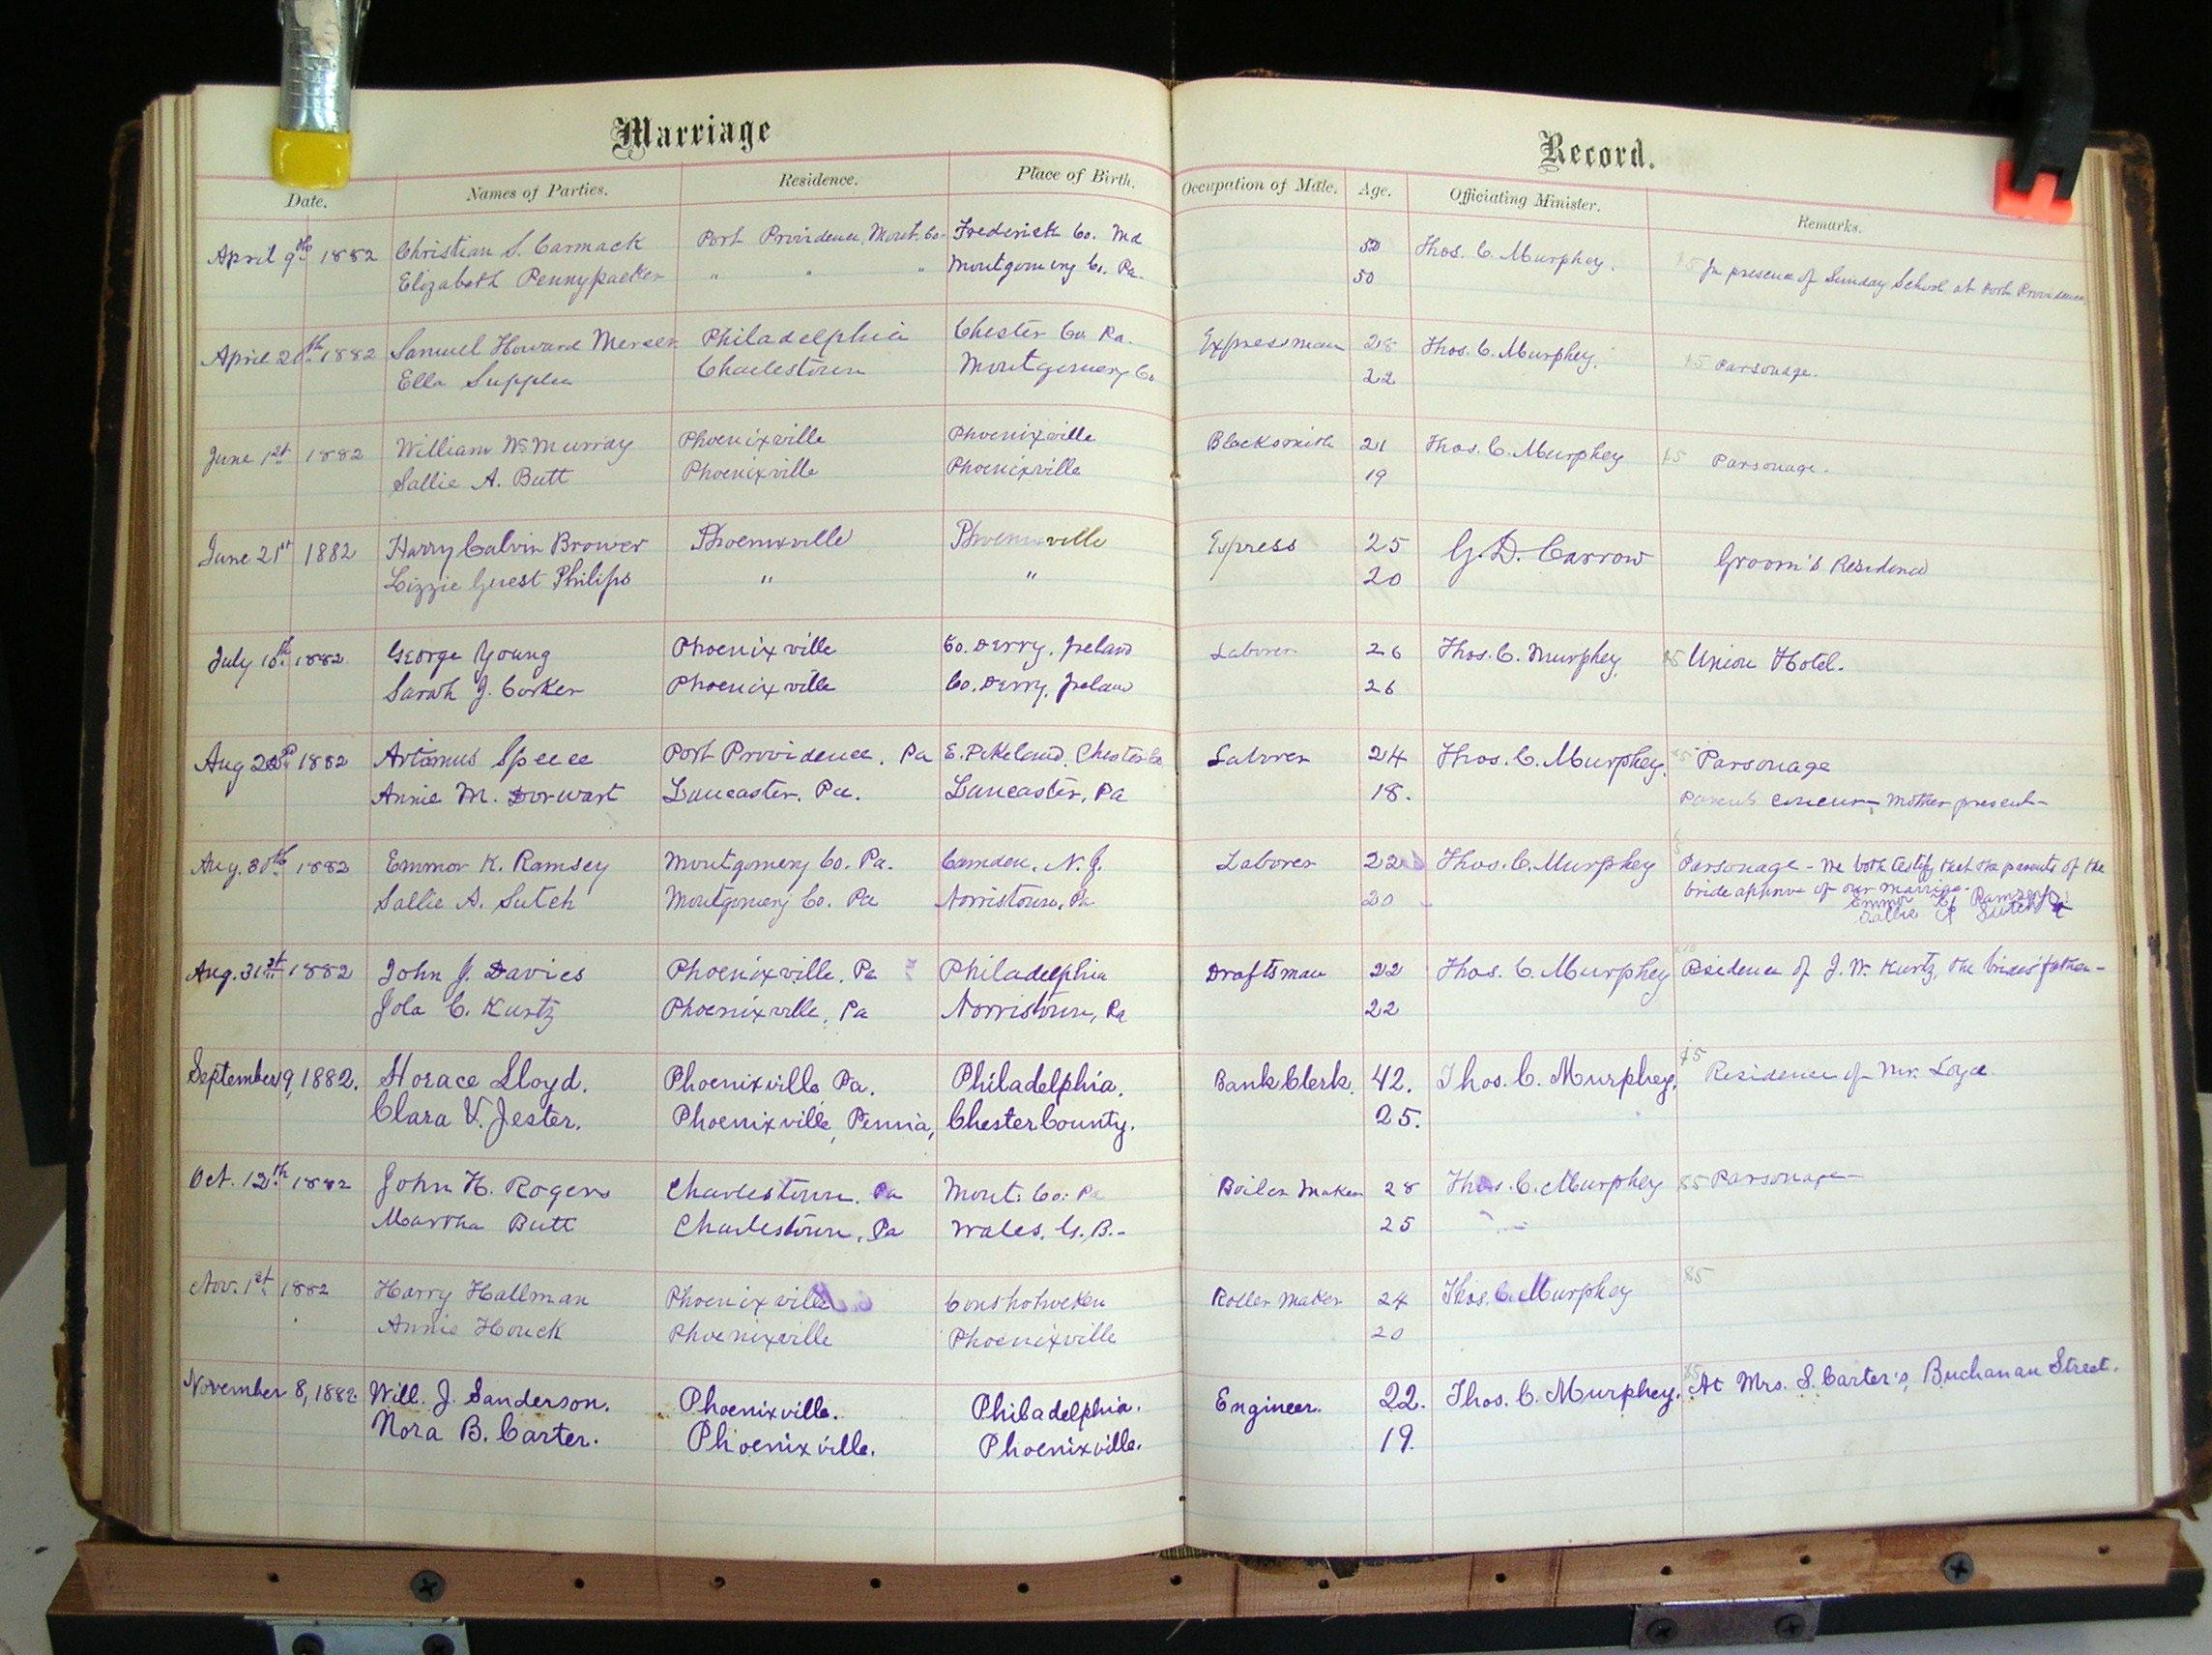 Marriage Record.
Date. Names of Parties. Residence. Place of Birth. Occupation of Male. Age. Officiating Minister. Remarks.
April 9th 1882 Christian S. Carmack Port Providence, Mont. Co. Frederick Co. Md 50 Thos. C. Murphey. $5 In presence of Sunday School at Port Providence
Elizabeth Pennypacker " " " Montgomery Co. Pa. 50
April 20th 1882 Samuel Howard Mercer Philadelphia Chester Co. Pa. Expressman 28 Thos. C. Murphey. $5 Parsonage.
Ella Supplee Charlestown Montgomery Co 22
June 1st 1882 William McMurray Phoenixville Phoenixville Blacksmith 21 Thos. C. Murphey $5 Parsonage.
Sallie A. Butt Phoenixville Phoenixville 19
June 21st 1882 Harry Calvin Brower Phoenixville Phoenixville Express 25 G. D. Carrow Groom's Residence
Lizzie Guest Philips " " 20
July 10th 1882 George Young Phoenixville Co. Derry, Ireland Laborer 26 Thos. C. Murphey $5 Union Hotel.
Sarah J. Corker Phoenixville Co. Derry, Ireland 26
Aug 1882 Artamus Speece Port Providence, Pa E. Pikeland, Chester Co. Laborer 24 Thos. C. Murphey. $5 Parsonage
Annie M. Dorwart Lancaster, Pa. Lancaster, Pa 18. Parents concur - Mother present -
Aug. 30th 1882 Emmor K. Ramsey Montgomery Co. Pa. Camden, N. J. Laborer 22 Thos. C. Murphey Parsonage - We both testify that the parents of the
Sallie A. Sutch Montgomery Co. Pa Norristown, Pa 20 bride approve of our marriage.
Emmor K Ramsey
Sallie A Sutch
Aug. 31st 1882 John J. Davies Phoenixville, Pa Philadelphia Draftsman 22 Thos. C. Murphey Residence of J. W. Kurtz, the brides' father -
Iola C. Kurtz Phoenixville, Pa Norristown, Pa 22
September 9, 1882. Horace Lloyd. Phoenixville, Pa. Philadelphia. Bank Clerk. 42. Thos. C. Murphey. $5 Residence of Mr. Loyd
Clara V. Jester. Phoenixville, Penn'a, Chester County. 25.
Oct. 12th 1882 John H. Rogers Charlestown, Pa Mont. Co. Pa Boiler Maker 28 Thos. C. Murphey $5 Parsonage
Martha Butt Charlestown, Pa Wales, G. B. - 25
Nov. 1st 1882 Harry Hallman Phoenixville Conshohocken Roller Maker 24 Thos. C. Murphey $5
Annie Houck Phoenixville Phoenixville 20
November 8, 1882. Will. J. Sanderson. Phoenixville. Philadelphia. Engineer. 22. Thos. C. Murphey. $5 At Mrs. S. Carter's, Buchanan Street.
Nora B. Carter. Phoenixville. Phoenixville. 19.